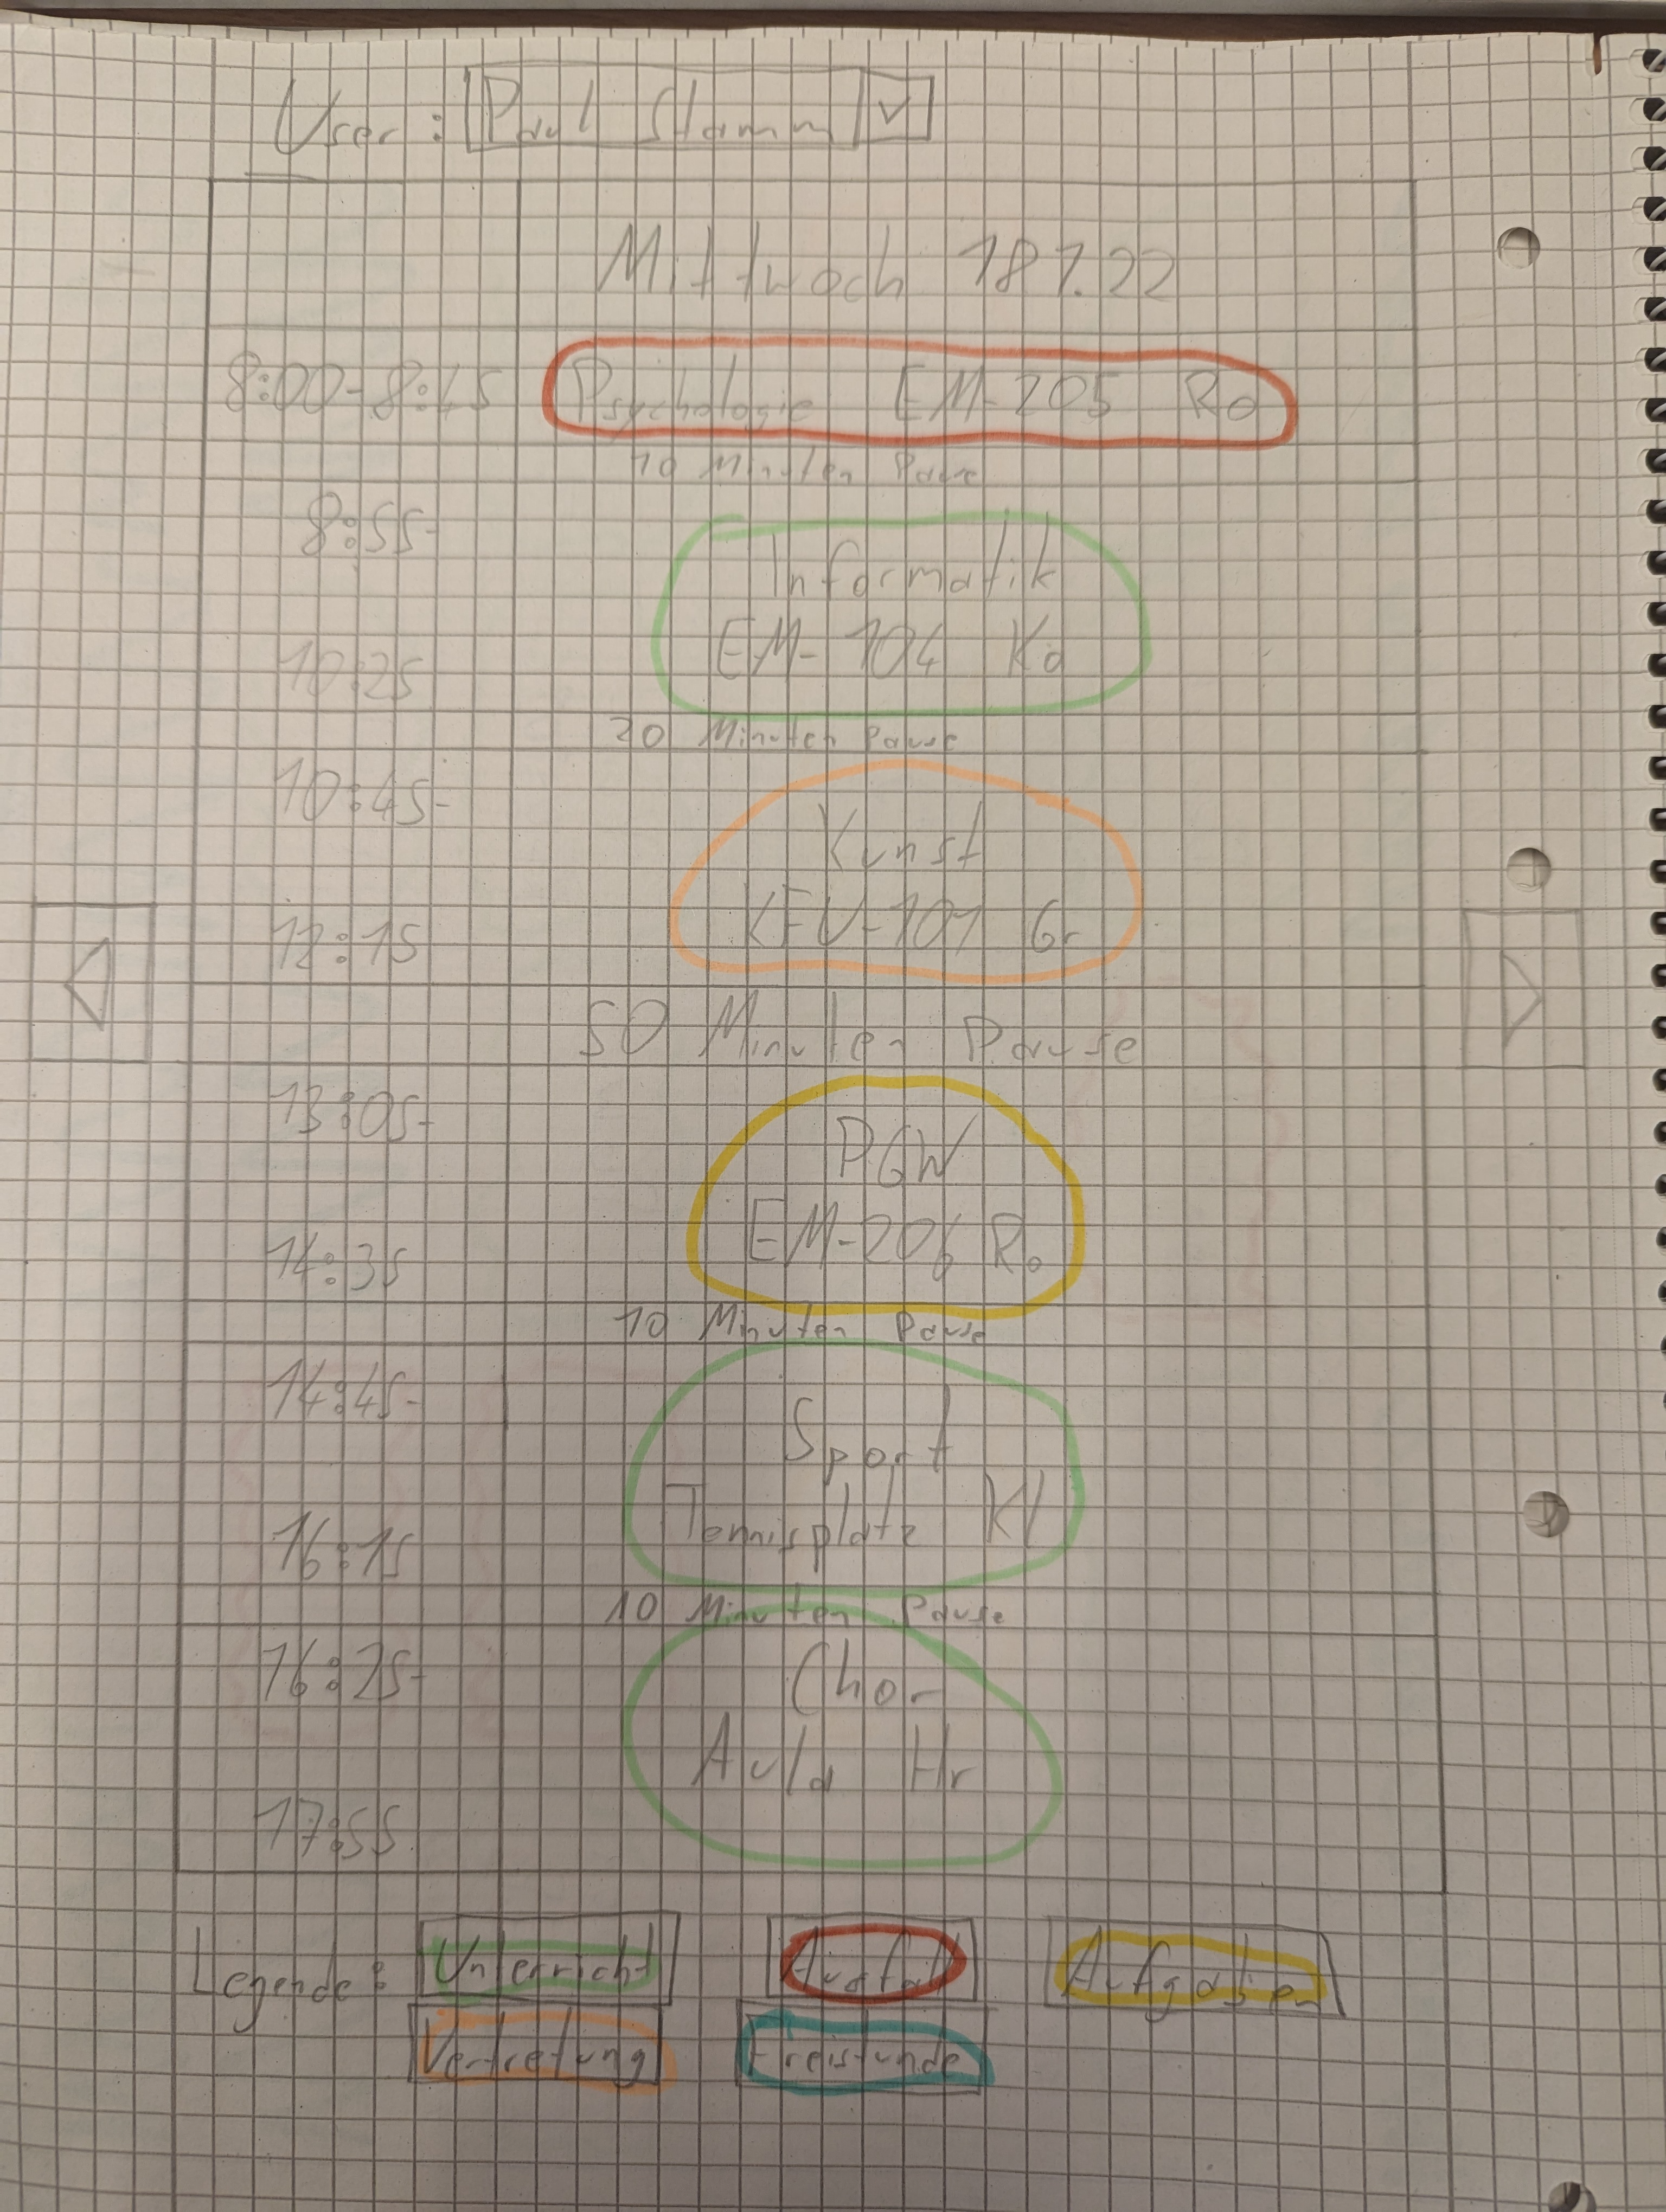 User: Paul Stamm
Mittwoch 18 1.22
8:00-8:45 Psychologie EM-205 Ro
10 Minuten Pause
8:55-
Informatik
EM-104 Ka
10:25
20 Minuten Pause
10:45-
Kunst
KEU-101 Gr
12:15
50 Minuten Pause
13:05-
PGW
EM-206 Ro
14:35
10 Minuten Pause
14:45-
Sport
Tennisplatz Kl
16:15
10 Minuten Pause
16:25-
Chor
Aula Hr
17:55
Legende: Unterricht Ausfall Aufgaben
Vertretung Freistunde